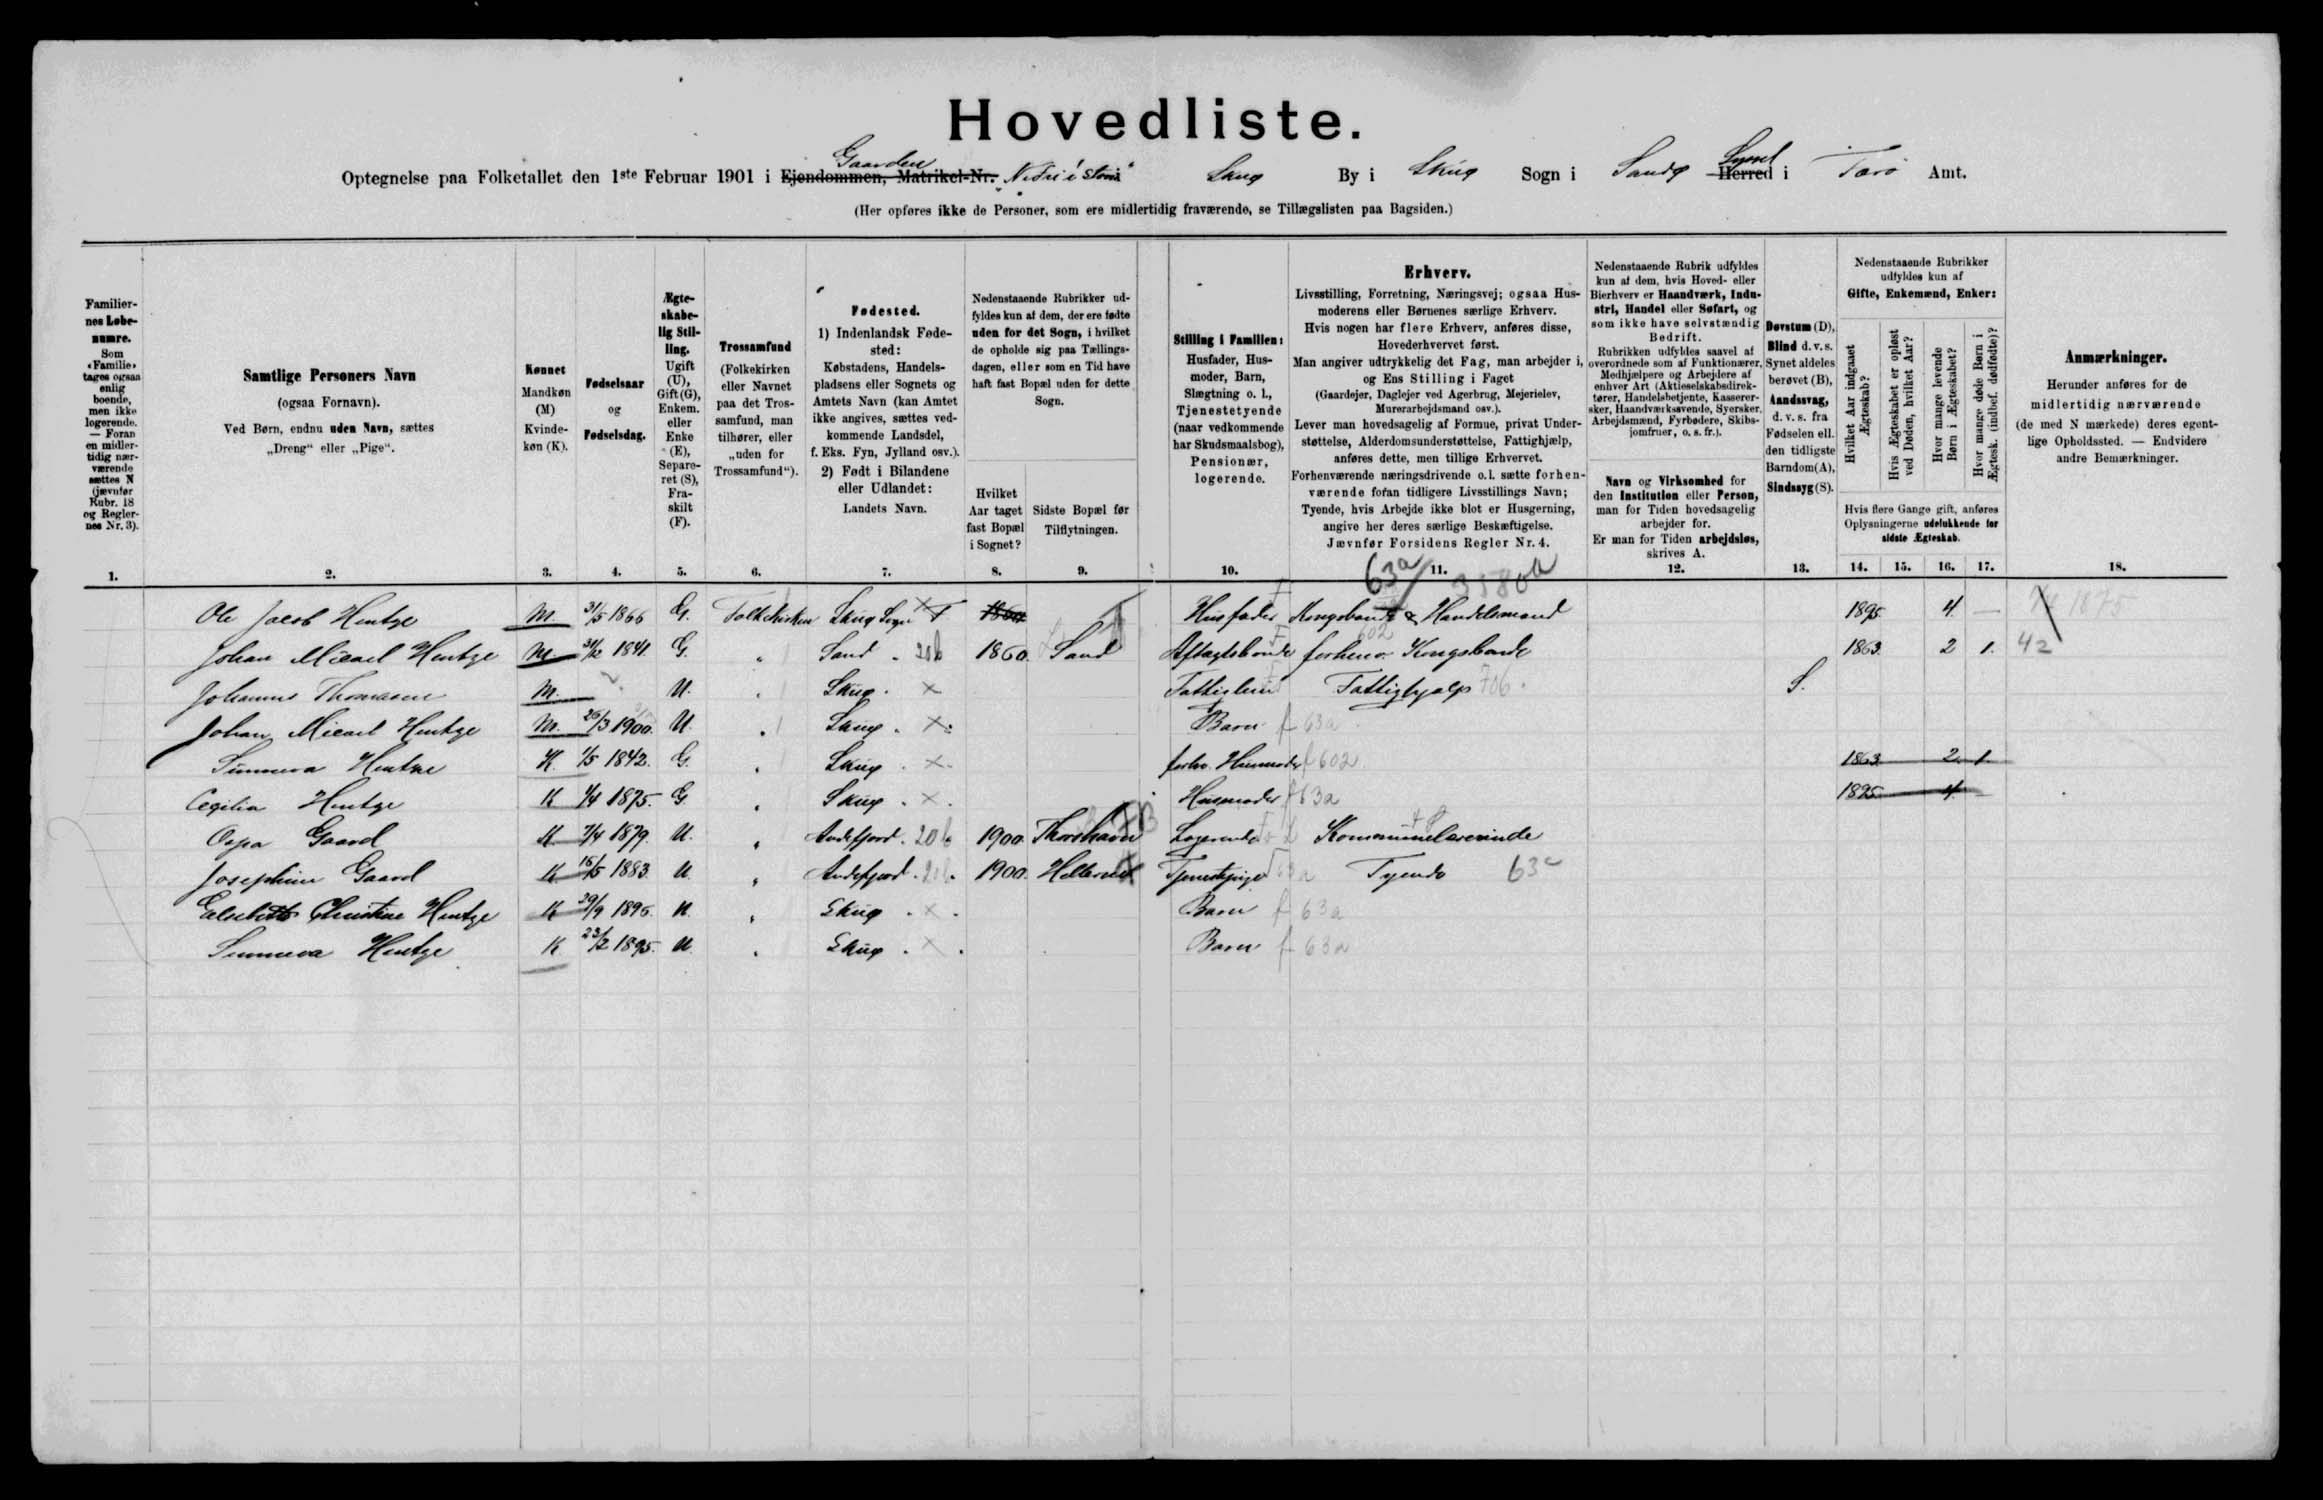 Hovedliste.
Optegnelse paa Folketallet den 1ste Februar 1901 i Gaarden Ejendommen, Matrikel-Nr. Skug By i Skug Sogn i Sandø Syssel Herred i Færø Amt.
(Her opføres ikke de Personer, som ere midlertidig fraværende, se Tillægslisten paa Bagsiden.)
Familiernes Løbenumre.
Som «Familie» tages ogsaa enlig boende, men ikke logerende. — Foran en midlertidig nærværende sættes N (jævnfør Rubr. 18 og Reglernes Nr. 3).
Samtlige Personers Navn
(ogsaa Fornavn).
Ved Børn, endnu uden Navn, sættes
„Dreng“ eller „Pige“.
Kønnet
Mandkøn (M)
Kvindekøn (K).
Fødselsaar
og
Fødselsdag.
Ægteskabelig Stilling.
Ugift (U), Gift (G), Enkem. eller Enke (E), Separeret (S), Fraskilt (F).
Trossamfund
(Folkekirken eller Navnet paa det Trossamfund, man tilhører, eller „uden for Trossamfund“).
Fødested.
1) Indenlandsk Fødested:
Købstadens, Handelspladsens eller Sognets og Amtets Navn (kan Amtet ikke angives, sættes vedkommende Landsdel, f. Eks. Fyn, Jylland osv.).
2) Født i Bilandene eller Udlandet:
Landets Navn.
Nedenstaaende Rubrikker udfyldes kun af dem, der ere fødte uden for det Sogn, i hvilket de opholde sig paa Tællingsdagen, eller som en Tid have haft fast Bopæl uden for dette Sogn.
Hvilket Aar taget fast Bopæl i Sognet?
Sidste Bopæl før Tilflytningen.
Stilling i Familien:
Husfader, Husmoder, Barn, Slægtning o. l., Tjenestetyende (naar vedkommende har Skudsmaalsbog), Pensionær, logerende.
Erhverv.
Livsstilling, Forretning, Næringsvej; ogsaa Husmoderens eller Børnenes særlige Erhverv.
Hvis nogen har flere Erhverv, anføres disse, Hovederhvervet først.
Man angiver udtrykkelig det Fag, man arbejder i, og Ens Stilling i Faget
(Gaardejer, Daglejer ved Agerbrug, Mejerielev, Murerarbejdsmand osv.).
Lever man hovedsagelig af Formue, privat Understøttelse, Alderdomsunderstøttelse, Fattighjælp, anføres dette, men tillige Erhvervet.
Forhenværende næringsdrivende o. l. sætte forhenværende foran tidligere Livsstillings Navn;
Tyende, hvis Arbejde ikke blot er Husgerning, angive her deres særlige Beskæftigelse.
Jævnfør Forsidens Regler Nr. 4.
Nedenstaaende Rubrik udfyldes kun af dem, hvis Hoved- eller Bierhverv er Haandværk, Industri, Handel eller Søfart, og som ikke have selvstændig Bedrift.
Rubrikken udfyldes saavel af overordnede som af Funktionærer, Medhjælpere og Arbejdere af enhver Art (Aktieselskabsdirektører, Handelsbetjente, Kasserersker, Haandværkssvende, Syersker, Arbejdsmænd, Fyrbødere, Skibsjomfruer, o. s. fr.).
Navn og Virksomhed for den Institution eller Person, man for Tiden hovedsagelig arbejder for.
Er man for Tiden arbejdsløs, skrives A.
Døvstum (D), Blind d. v. s. Synet aldeles berøvet (B), Aandssvag, d. v. s. fra Fødselen ell. den tidligste Barndom (A), Sindssyg (S).
Nedenstaaende Rubrikker udfyldes kun af
Gifte, Enkemænd, Enker:
Hvilket Aar indgaaet Ægteskab?
Hvis Ægteskabet er opløst ved Døden, hvilket Aar?
Hvor mange levende Børn i Ægteskabet?
Hvor mange døde Børn i Ægtesk. (indbef. dødfødte)?
Hvis flere Gange gift, anføres Oplysningerne udelukkende for sidste Ægteskab.
Anmærkninger.
Herunder anføres for de midlertidig nærværende (de med N mærkede) deres egentlige Opholdssted. — Endvidere andre Bemærkninger.
1. 2. 3. 4. 5. 6. 7. 8. 9. 10. 11. 12. 13. 14. 15. 16. 17. 18.
63a
Ole Jacob Hentze M 31/5 1866 G. Folkekirken Skug Sogn 1860 Husfader Kongsbonde & Handelsmand 1895 4 — 1875
Johan Micael Hentze M 1841 G. " Sand " 20b 1860 Sand Aftægtsbonde forhenv. Kongsbonde 602 1863 2 1. 42
Johannes Thomasen M. U. " Skug " × Fattiglem Fattighjælp 706 S.
Johan Micael Hentze M. 26/3 1900 U. " Skug " × Barn f 63a
Sunneva Hentze K. 1/5 1842. G. " Skug " × forhv. Husmoder f 602 1863 2 1
Cecilia Hentze K 1/4 1875. G " Skug " × Husmoder f 63a 1895 4 -
Gaard K 7/4 1879. U. " Andefjord " 20b 1900 Thorshavn Logerende Kommunelærerinde
Josephine Gaard K 16/5 1883 U. " Andefjord " 20b 1900. Tjenestepige 63a Tyende 63c
Elsebeth Christine Hentze K 29/9 1896. U. " Skug " × Barn f 63a
Sunneva Hentze K. 23/2 1895. U. " Skug " × Barn f 63a